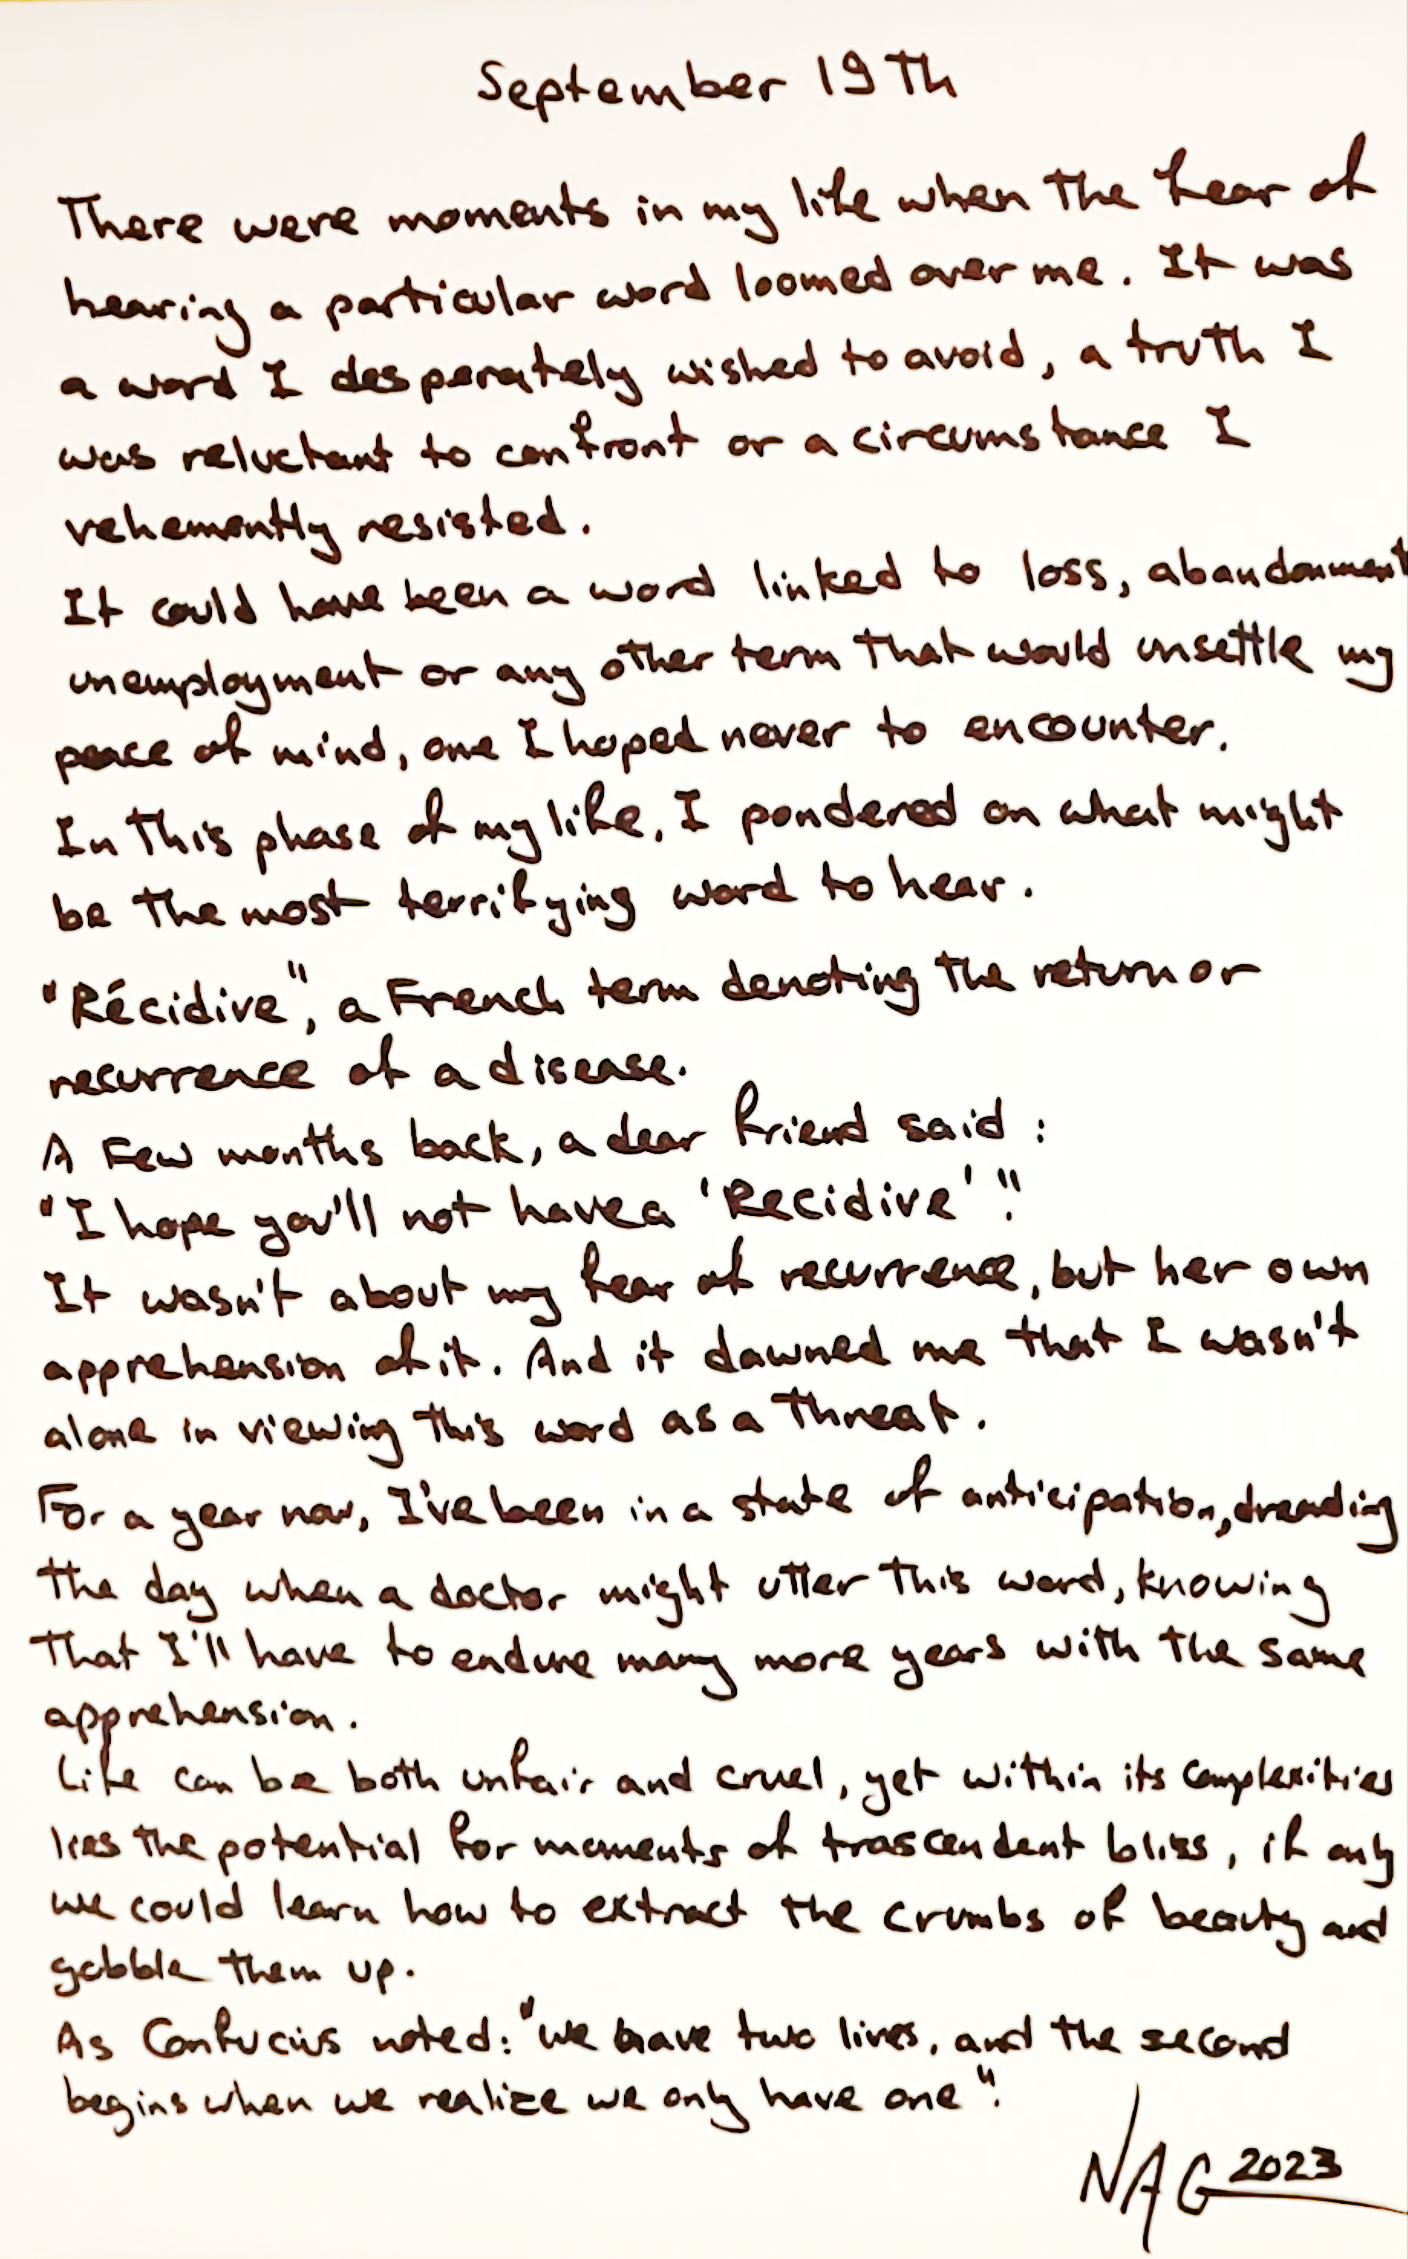 September 19Th
There were moments in my life when the fear of
hearing a particular word loomed over me. It was
a word I desperately wished to avoid, a truth I
was reluctant to confront or a circumstance I
vehemently resisted.
It could have been a word linked to loss, abandonment
unemployment or any other term that would unsettle my
peace of mind, one I hoped never to encounter.
In this phase of my life, I pondered on what might
be the most terrifying word to hear.
"Récidive", a French term denoting the return or
recurrence of a disease.
A Few months back, a dear friend said :
"I hope you'll not have a 'Recidive'".
It wasn't about my fear of recurrence, but her own
apprehension of it. And it dawned me that I wasn't
alone in viewing this word as a threat.
For a year now, I've been in a state of anticipation, dreading
the day when a doctor might utter this word, knowing
that I'll have to endure many more years with the same
apprehension.
Life can be both unfair and cruel, yet within its complexities
lies the potential for moments of trascendent bliss, if only
we could learn how to extract the crumbs of beauty and
gobble them up.
As Confucius noted: "we have two lives, and the second
begins when we realize we only have one".
NAG 2023